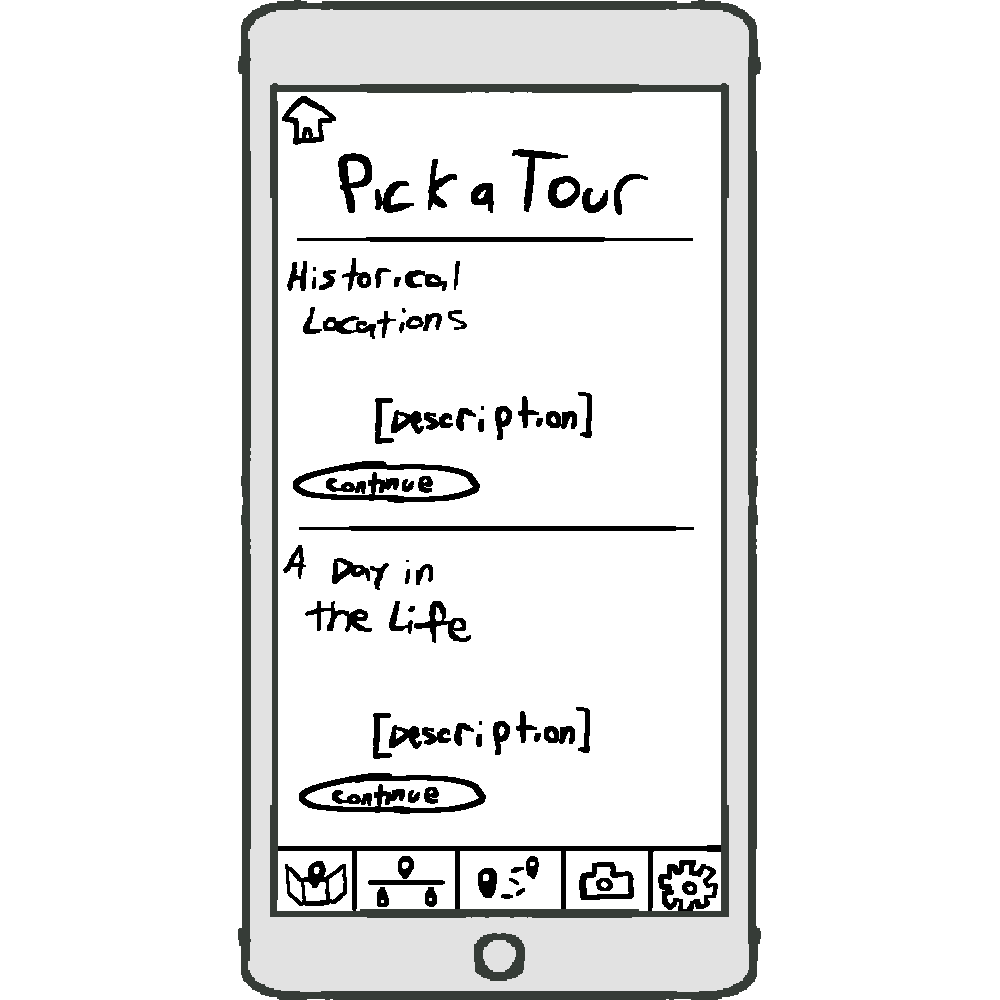 Pick a Tour
Historical
Locations
[Description]
continue
A Day in
the Life
[Description]
continue